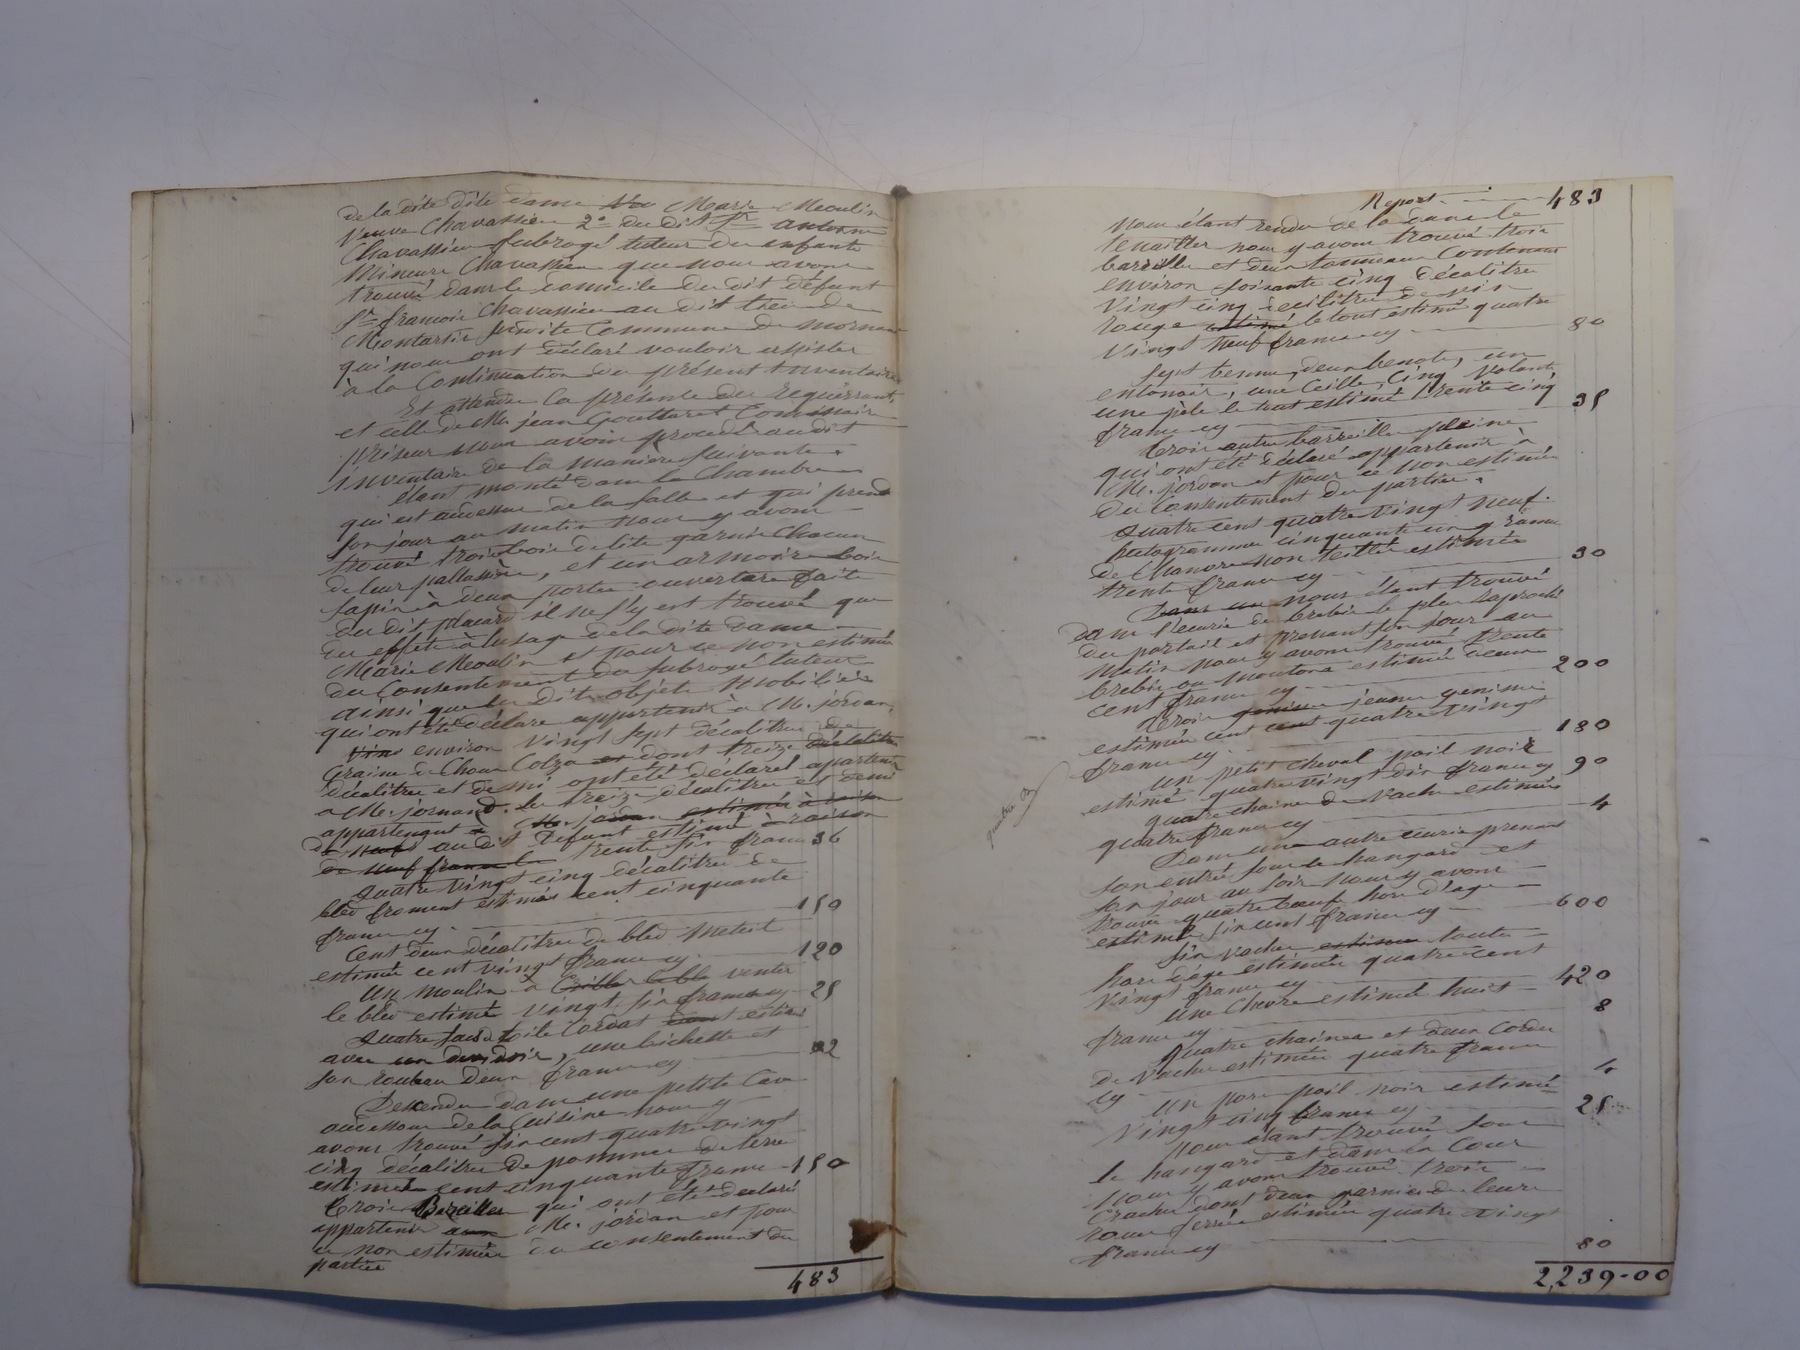 de la dite dite dame Marie Meoulin
Veuve Chavassieu 2° du dit Sr antoine
Chavassieu subrogé tuteur des enfants
Mineurs Chavassieu que nous avons
trouvé dans le domicile du dit défunt
Sr françois Chavassieu au dit lieu de
susdite Commune de mornand
qui nous ont déclaré vouloir assister
à la Continuation du présent inventaire
Et attendu la présence des requérants
et celle de Me jean Gouttaret Commissaire
priseur nous avons procédé audit
inventaire de la manière suivante.
Étant monté dans la Chambre
qui est audessus de la salle et qui prend
son jour au matin nous y avons
trouvé trois bois de lits garnis chacun
de leur paillassière, et un armoire bois
sapin à deux portes ouverture faite
du dit placard il ne s'y est trouvé que
des effets à l'usage de la dite dame
Marie Meoulin et pour ce non estimés
du Consentement du subrogé tuteur
ainsi que les dits objets mobiliers
qui ont été déclaré appartenir à M. jordan,
environ Vingt sept décalitres de
Graine de Choux Colza dont treize
décalitres et demi ont été déclaré appartenir
à M. jornand. les treize décalitres et demi
appartenant
au dit défunt estimé
trente six francs 36
Quatre vingt cinq décalitres de
bled froment estimés cent cinquante
francs cy 150
Cent deux décalitres de bled Meteil
estimés cent vingt francs cy 120
Un moulin à venter
le bled estimé vingt six francs cy 25
Quatre sacs toile Cordat
avec, une bichette et
son rouleau deux francs cy 2
Descendu dans une petite Cave
audessous de la Cuisine nous y
avons trouvé six cent quatre vingt
cinq décalitres de pommes de terre
estimées cent cinquante francs 150
trois Bareilles qui ont été déclaré
appartenir M. jordan et pour
ce non estimées du consentement des
parties
483
Report 483
Nous étant rendu de là dans le
tenaillier nous y avons trouvé trois
bareilles et deux tonneaux Contenant
environ soixante cinq décalitres
Vingt cinq décilitres de vin
rouge le tout estimé quatre
Vingt francs cy 80
sept bennes, deux benots, un
entonoir, une Ceille, Cinq Volants
une pèle le tout estimé trente cinq
francs cy 35
trois autre barreilles pleine
qui ont été déclaré appartenir à
M. jordan et pour ce non estimées
du Consentement des parties.
Quatre cens quatre vingt neuf
hectogrammes cinquante un grammes
de Chanvre non teillé estimés
trente francs cy 30
nous étant trouvé
dans l'écurie des brebis le plus raproché
du portail et prenant son jour au
Matin nous y avons trouvé trente
brebis ou moutons estimés deux
cent francs cy 200
trois jeunes genisses
estimées cent quatre vingt
francs cy 180
Un petit cheval poil noir
estimé quatre vingt dix francs cy 90
quatre chaines de vache estimées
quatre francs cy 4
Dans une autre écurie prenant
son entrée sous le hangard et
son jour au soir nous y avons
trouvé quatre bœufs hors d'age
estimés six cent francs cy 600
six vaches toute
hors d'age estimées quatre cent
Vingt francs cy 420
Une Chevre estimée huit
francs cy 8
Quatre chaines et deux Cordes
de Vaches estimées quatre francs
cy 4
Un porc poil noir estimé
Vingt cinq francs cy 25
Nous étant trouvé sous
le hangard et dans la Cour
Nous y avons trouvé trois
dont deux garnies de leurs
roues ferrées estimées quatre vingt
francs cy 80
2,239-00